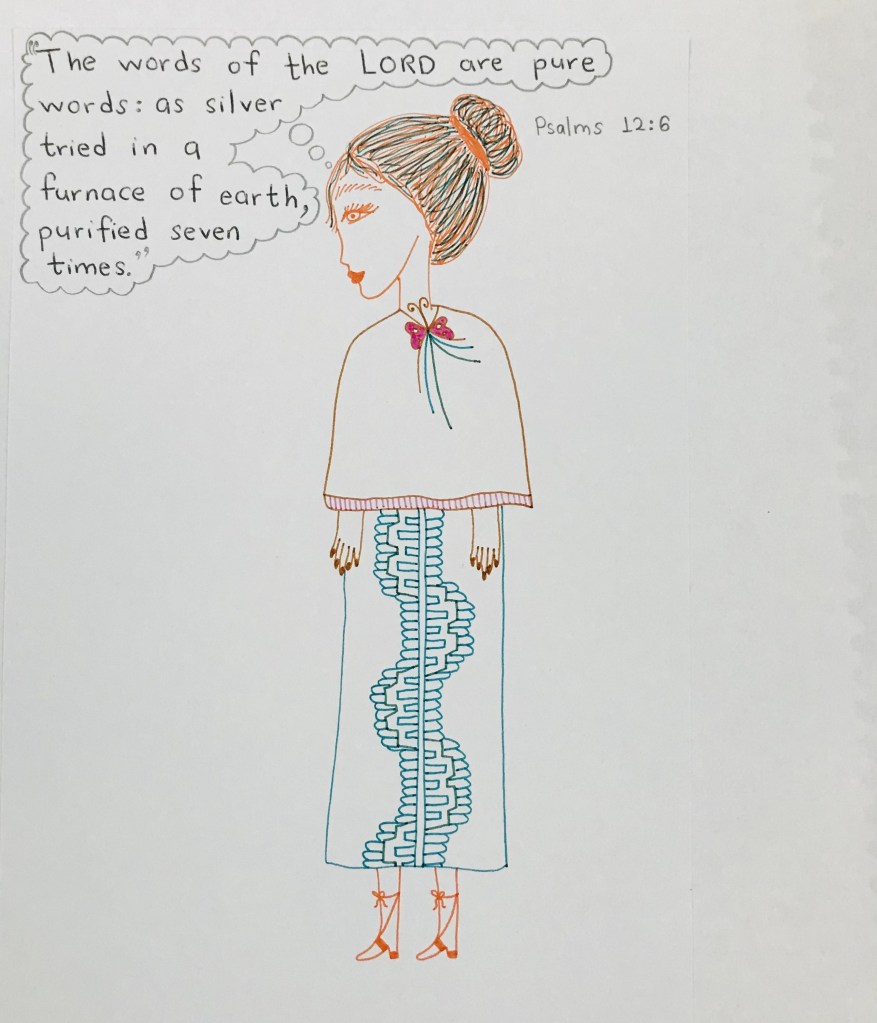 "The words of the LORD are pure
words: as silver
tried in a
furnace of earth,
purified seven
times."
Psalms 12:6